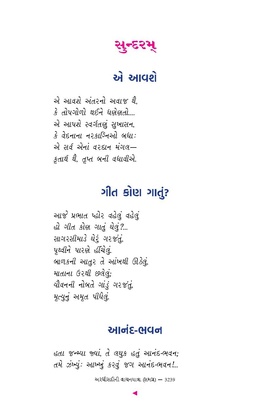 સુન્દરમ્
એ આવશે
એ આવશે અંતરનો અવાજ થૈ,
કે તોપગોળો થઈને ધણેણતો....
એ આપશે સ્વર્ગતણું સુખાસન,
કે વેદનાના નરકાગ્નિઓ બધાઃ
એ સર્વ એનાં વરદાન મંગલ—
કૃતાર્થ થૈ, તૃપ્ત બની વધાવીએ.
ગીત કોણ ગાતું?
આજે પ્રભાત પ્હોર વહેલું વહેલું
હો ગીત કોણ ગાતું ઘેલું?...
સાગરસીમાડે ઘેરું ગરજંતું,
પૃથ્વીને પારણે હીંચેલું,
બાળકની આતુર તે આંખથી ઊઠેલું,
માતાના ઉરથી છલેલું;
યૌવનની નોબતે ગાઢું ગરજંતું,
મૃત્યુનું અમૃત પીધેલું,
આનંદ-ભવન
હતા જન્મ્યા જ્યાં, તે લઘુક હતું આનંદ-ભવન;
તમે ઝંખ્યુંઃ આખ્ખું કરવું જગ આનંદ-ભવન!...